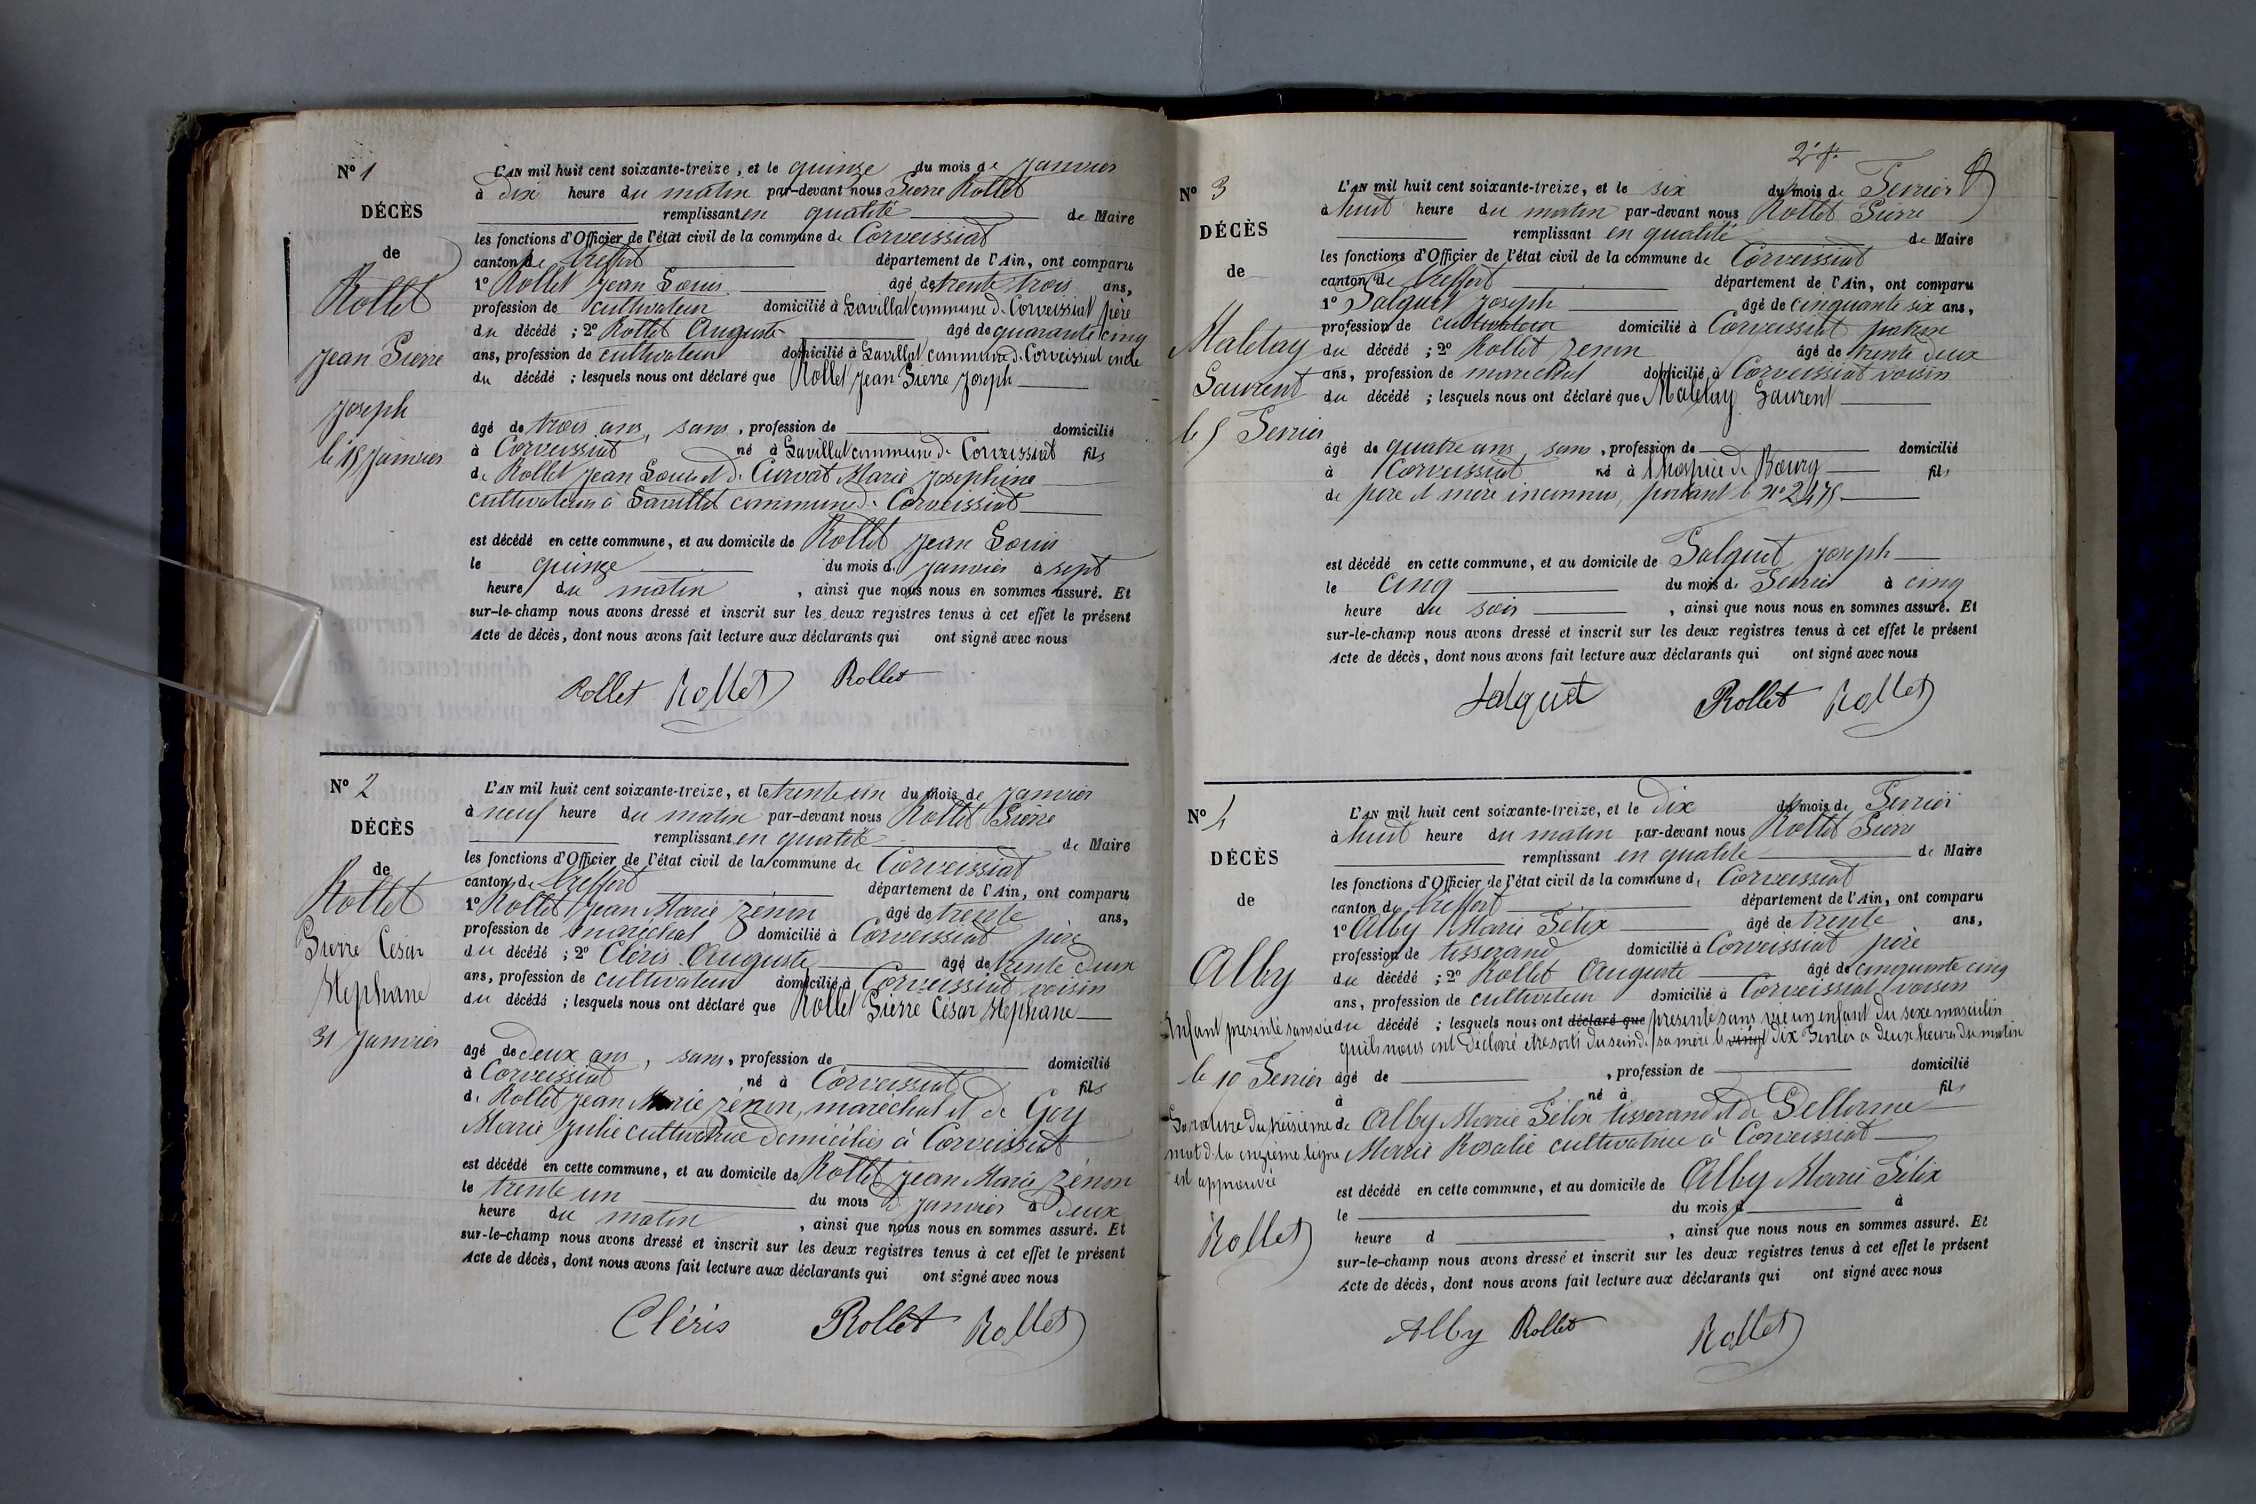 Nº 1
DÉCÈS
de
Rollet
Jean Pierre
Joseph
le 15 Janvier
L'AN mil huit cent soixante-treize, et le quinze du mois de Janvier
à dix heure du matin par-devant nous Pierre Rollet
remplissant en qualité de Maire
les fonctions d'Officier de l'état civil de la commune de Corveissiat
canton de Treffort département de l'Ain, ont comparu
1º Rollet Jean Louis âgé de trente trois ans,
profession de cultivateur domicilié à Lavillat commune de Corveissiat père
du décédé ; 2º Rollet Auguste âgé de quarante cinq
ans, profession de cultivateur domicilié à Lavillat commune de Corveissiat oncle
du décédé ; lesquels nous ont déclaré que Rollet Jean Pierre Joseph
âgé de trois ans, sans, profession de domicilié
à Corveissiat né à Lavillat commune de Corveissiat fils
de Rollet Jean Louis et de Curvat Marie Josephine
cultivateurs à Lavillat commune de Corveissiat
est décédé en cette commune, et au domicile de Rollet Jean Louis
le quinze du mois de Janvier à sept
heure du matin, ainsi que nous nous en sommes assuré. Et
sur-le-champ nous avons dressé et inscrit sur les deux registres tenus à cet effet le présent
Acte de décès, dont nous avons fait lecture aux déclarants qui ont signé avec nous
Rollet Rollet Rollet
Nº 2
DÉCÈS
de
Rollet
Pierre César
Stephane
31 Janvier
L'AN mil huit cent soixante-treize, et le trente un du mois de Janvier
à neuf heure du matin par-devant nous Rollet Pierre
remplissant en qualité de Maire
les fonctions d'Officier de l'état civil de la commune de Corveissiat
canton de Treffort département de l'Ain, ont comparu
1º Rollet Jean Marie Zénon âgé de trente ans,
profession de maréchal domicilié à Corveissiat père
du décédé ; 2º Cléris Auguste âgé de trente deux
ans, profession de cultivateur domicilié à Corveissiat voisin
du décédé ; lesquels nous ont déclaré que Rollet Pierre César Stephane
âgé de deux ans, sans, profession de domicilié
à Corveissiat né à Corveissiat fils
de Rollet Jean Marie Zénon, maréchal et de Goy
Marie Julie cultivatrice domiciliés à Corveissiat
est décédé en cette commune, et au domicile de Rollet Jean Marie Zénon
le trente un du mois de Janvier à deux
heure du matin, ainsi que nous nous en sommes assuré. Et
sur-le-champ nous avons dressé et inscrit sur les deux registres tenus à cet effet le présent
Acte de décès, dont nous avons fait lecture aux déclarants qui ont signé avec nous
Cléris Rollet Rollet
Nº 3
DÉCÈS
de
Maletay
Laurent
le 5 Fevrier
L'AN mil huit cent soixante-treize, et le six du mois de Fevrier
à huit heure du matin par-devant nous Rollet Pierre
remplissant en qualité de Maire
les fonctions d'Officier de l'état civil de la commune de Corveissiat
canton de Treffort département de l'Ain, ont comparu
1º Salquet Joseph âgé de cinquante six ans,
profession de cultivateur domicilié à Corveissiat patron
du décédé ; 2º Rollet Zenon âgé de trente deux
ans, profession de marechal domicilié à Corveissiat voisin
du décédé ; lesquels nous ont déclaré que Maletay Laurent
âgé de quatre ans, sans, profession de domicilié
à Corveissiat né à l'hospice de Bourg fils
de père et mère inconnus, portant le nº 2475
est décédé en cette commune, et au domicile de Salquet Joseph
le cinq du mois de Fevrier à cinq
heure du soir, ainsi que nous nous en sommes assuré. Et
sur-le-champ nous avons dressé et inscrit sur les deux registres tenus à cet effet le présent
Acte de décès, dont nous avons fait lecture aux déclarants qui ont signé avec nous
Salquet Rollet Rollet
Nº 4
DÉCÈS
de
Alby
Enfant presenté sans vie
le 10 Fevrier
La rature du treisième
mot de la onzième ligne
est approuvée
Rollet
L'AN mil huit cent soixante-treize, et le dix du mois de Fevrier
à huit heure du matin par-devant nous Rollet Pierre
remplissant en qualité de Maire
les fonctions d'Officier de l'état civil de la commune de Corveissiat
canton de Treffort département de l'Ain, ont comparu
1º Alby Marie Félix âgé de trente ans,
profession de tisserand domicilié à Corveissiat père
du décédé ; 2º Rollet Auguste âgé de cinquante cinq
ans, profession de cultivateur domicilié à Corveissiat voisin
du décédé ; lesquels nous ont déclaré que presenté sans vie un enfant du sexe masculin
qu'ils nous ont déclaré etre sorti du sein de sa mère le vingt dix Fevrier a deux heures du matin
âgé de, profession de domicilié
à né à fils
de Alby Marie Félix tisserand et de Pellorme
Marie Rosalie cultivatrice à Corveissiat
est décédé en cette commune, et au domicile de Alby Marie Félix
le du mois d à
heure d, ainsi que nous nous en sommes assuré. Et
sur-le-champ nous avons dressé et inscrit sur les deux registres tenus à cet effet le présent
Acte de décès, dont nous avons fait lecture aux déclarants qui ont signé avec nous
Alby Rollet Rollet